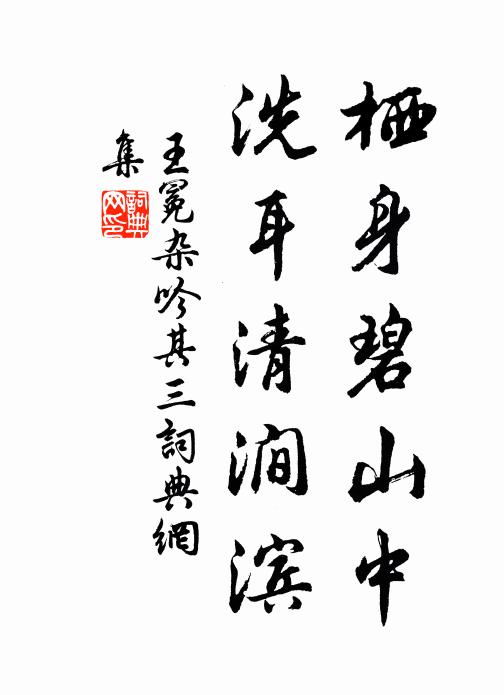 栖身碧山中
洗耳清涧滨
王冕杂吟其三词典網
集
詞典
网印